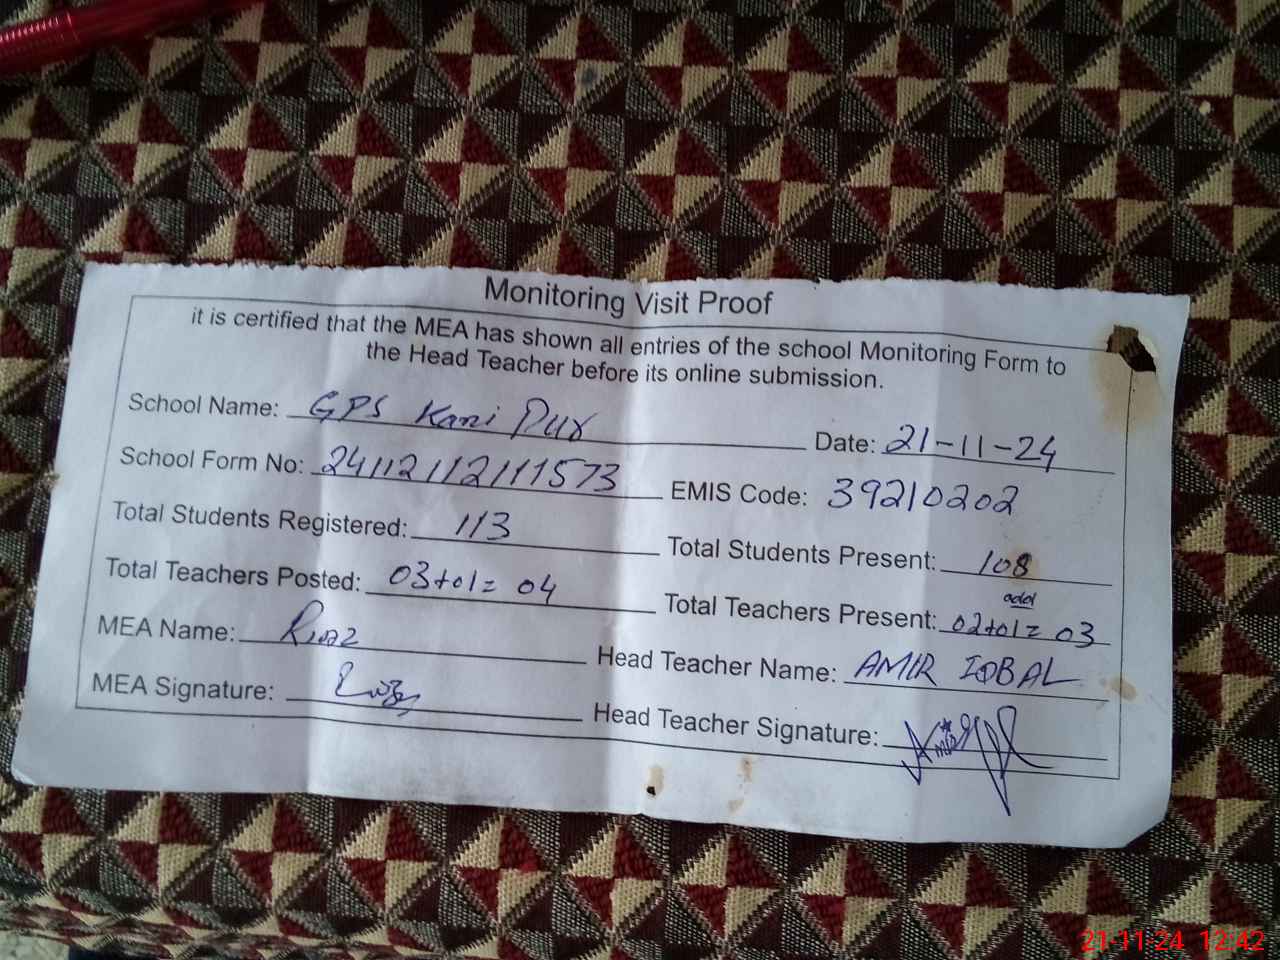 Monitoring Visit Proof
it is certified that the MEA has shown all entries of the school Monitoring Form to
the Head Teacher before its online submission.
School Name: GPS Kani Pur Date: 21-11-24
School Form No: 24112112111573 EMIS Code: 39210202
Total Students Registered: 113 Total Students Present: 108
add
Total Teachers Posted: 03+01= 04 Total Teachers Present: 02+01= 03
MEA Name: Riaz Head Teacher Name: AMIR IQBAL
MEA Signature: Head Teacher Signature:
21-11-24 12:42